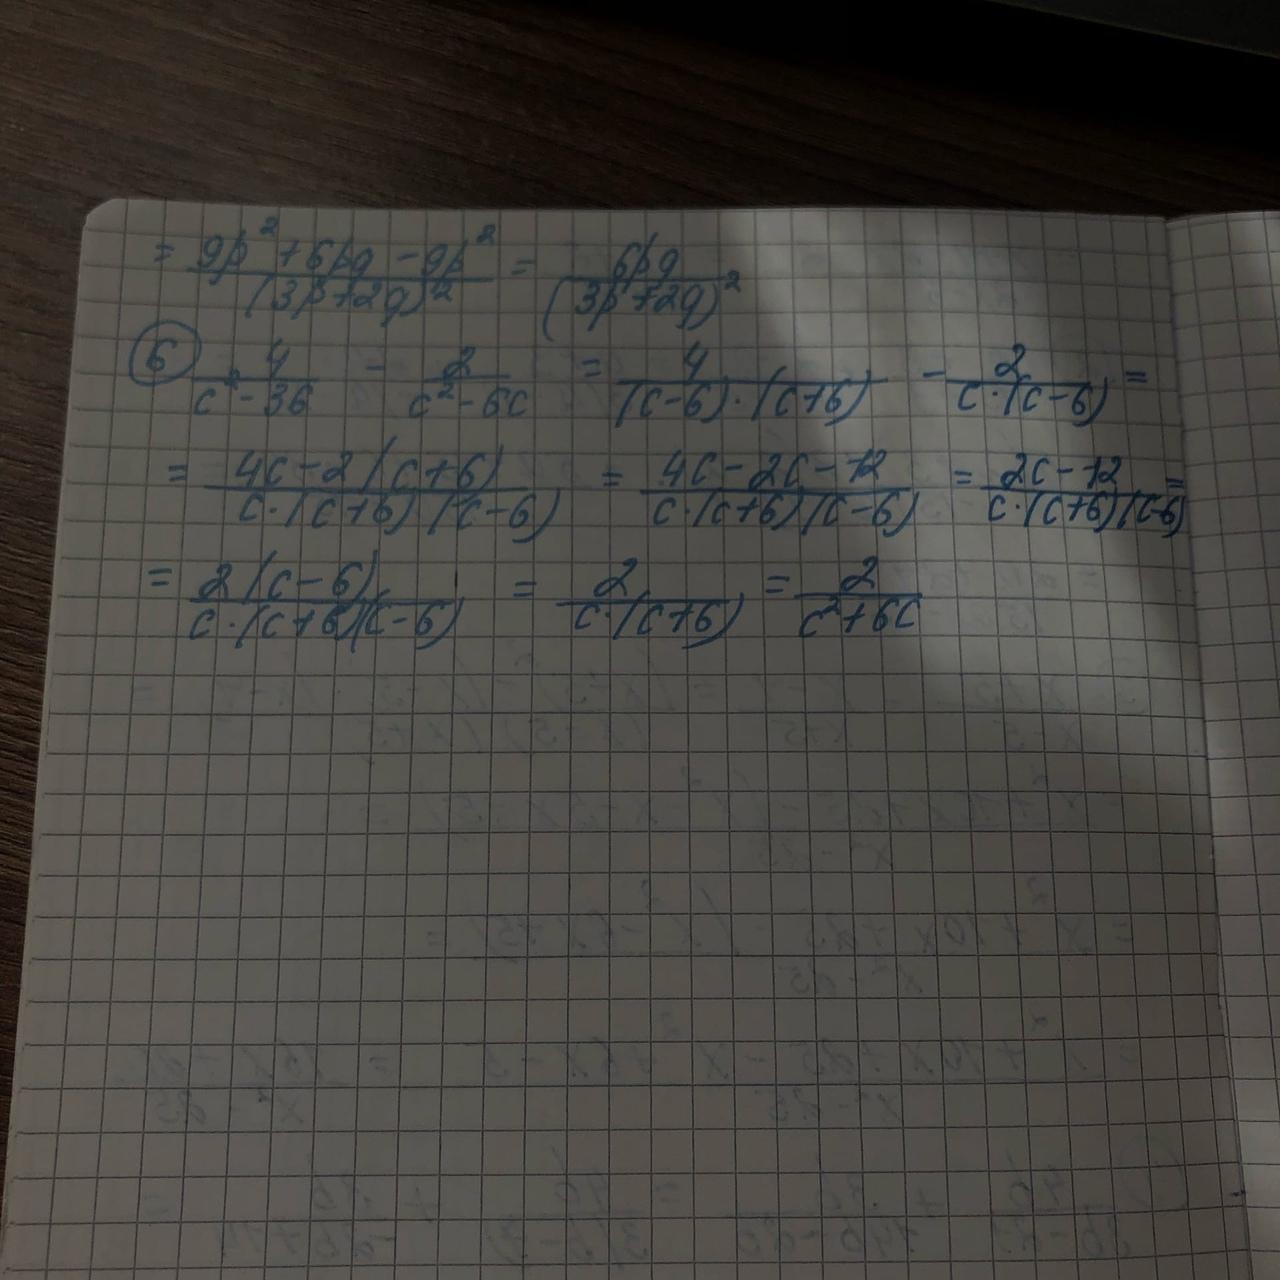 = (9p² + 6pq - 9p²)/((3p + 2q)²) = 6pq/((3p + 2q)²)
⑥ 4/(c² - 36) - 2/(c² - 6c) = 4/((c-6)·(c+6)) - 2/(c·(c-6)) =
= (4c - 2(c+6))/(c·(c+6)(c-6)) = (4c - 2c - 12)/(c·(c+6)(c-6)) = (2c - 12)/(c·(c+6)(c-6)) =
= 2(c-6)/(c·(c+6)(c-6)) = 2/(c·(c+6)) = 2/(c² + 6c)